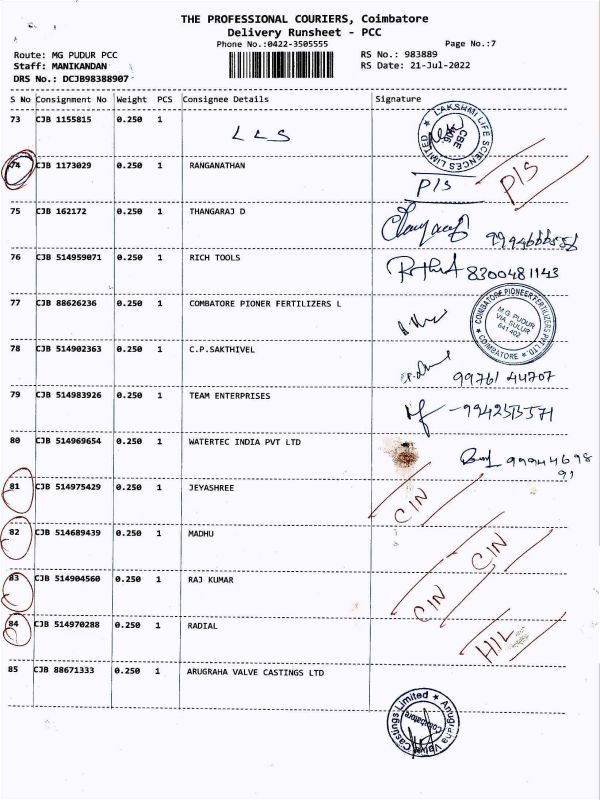 THE PROFESSIONAL COURIERS, Coimbatore
Delivery Runsheet - PCC
Phone No.:0422-3505555 Page No.:7
Route: MG PUDUR PCC RS No.: 983889
Staff: MANIKANDAN RS Date: 21-Jul-2022
DRS No.: DCJB98388907
S No Consignment No Weight PCS Consignee Details Signature
73 CJB 1155815 0.250 1 LLS
LAKSHMI LIFE SCIENCES LIMITED ★ CBE
74 CJB 1173029 0.250 1 RANGANATHAN
P/S P/S
75 CJB 162172 0.250 1 THANGARAJ D
76 CJB 514959071 0.250 1 RICH TOOLS
8300481143
77 CJB 88626236 0.250 1 COMBATORE PIONER FERTILIZERS L
COIMBATORE PIONEER FERTILIZERS PVT LTD. ★ COIMBATORE ★
M.G. PUDUR
VIA. SULUR
641 402
78 CJB 514902363 0.250 1 C.P.SAKTHIVEL
99761 44707
79 CJB 514983926 0.250 1 TEAM ENTERPRISES
80 CJB 514969654 0.250 1 WATERTEC INDIA PVT LTD
99944698
91
81 CJB 514975429 0.250 1 JEYASHREE
CIN
82 CJB 514689439 0.250 1 MADHU
CIN
83 CJB 514904560 0.250 1 RAJ KUMAR
CIN
84 CJB 514970288 0.250 1 RADIAL
HIL
85 CJB 88671333 0.250 1 ARUGRAHA VALVE CASTINGS LTD
Anugraha Valve Castings Limited ★
Coimbatore